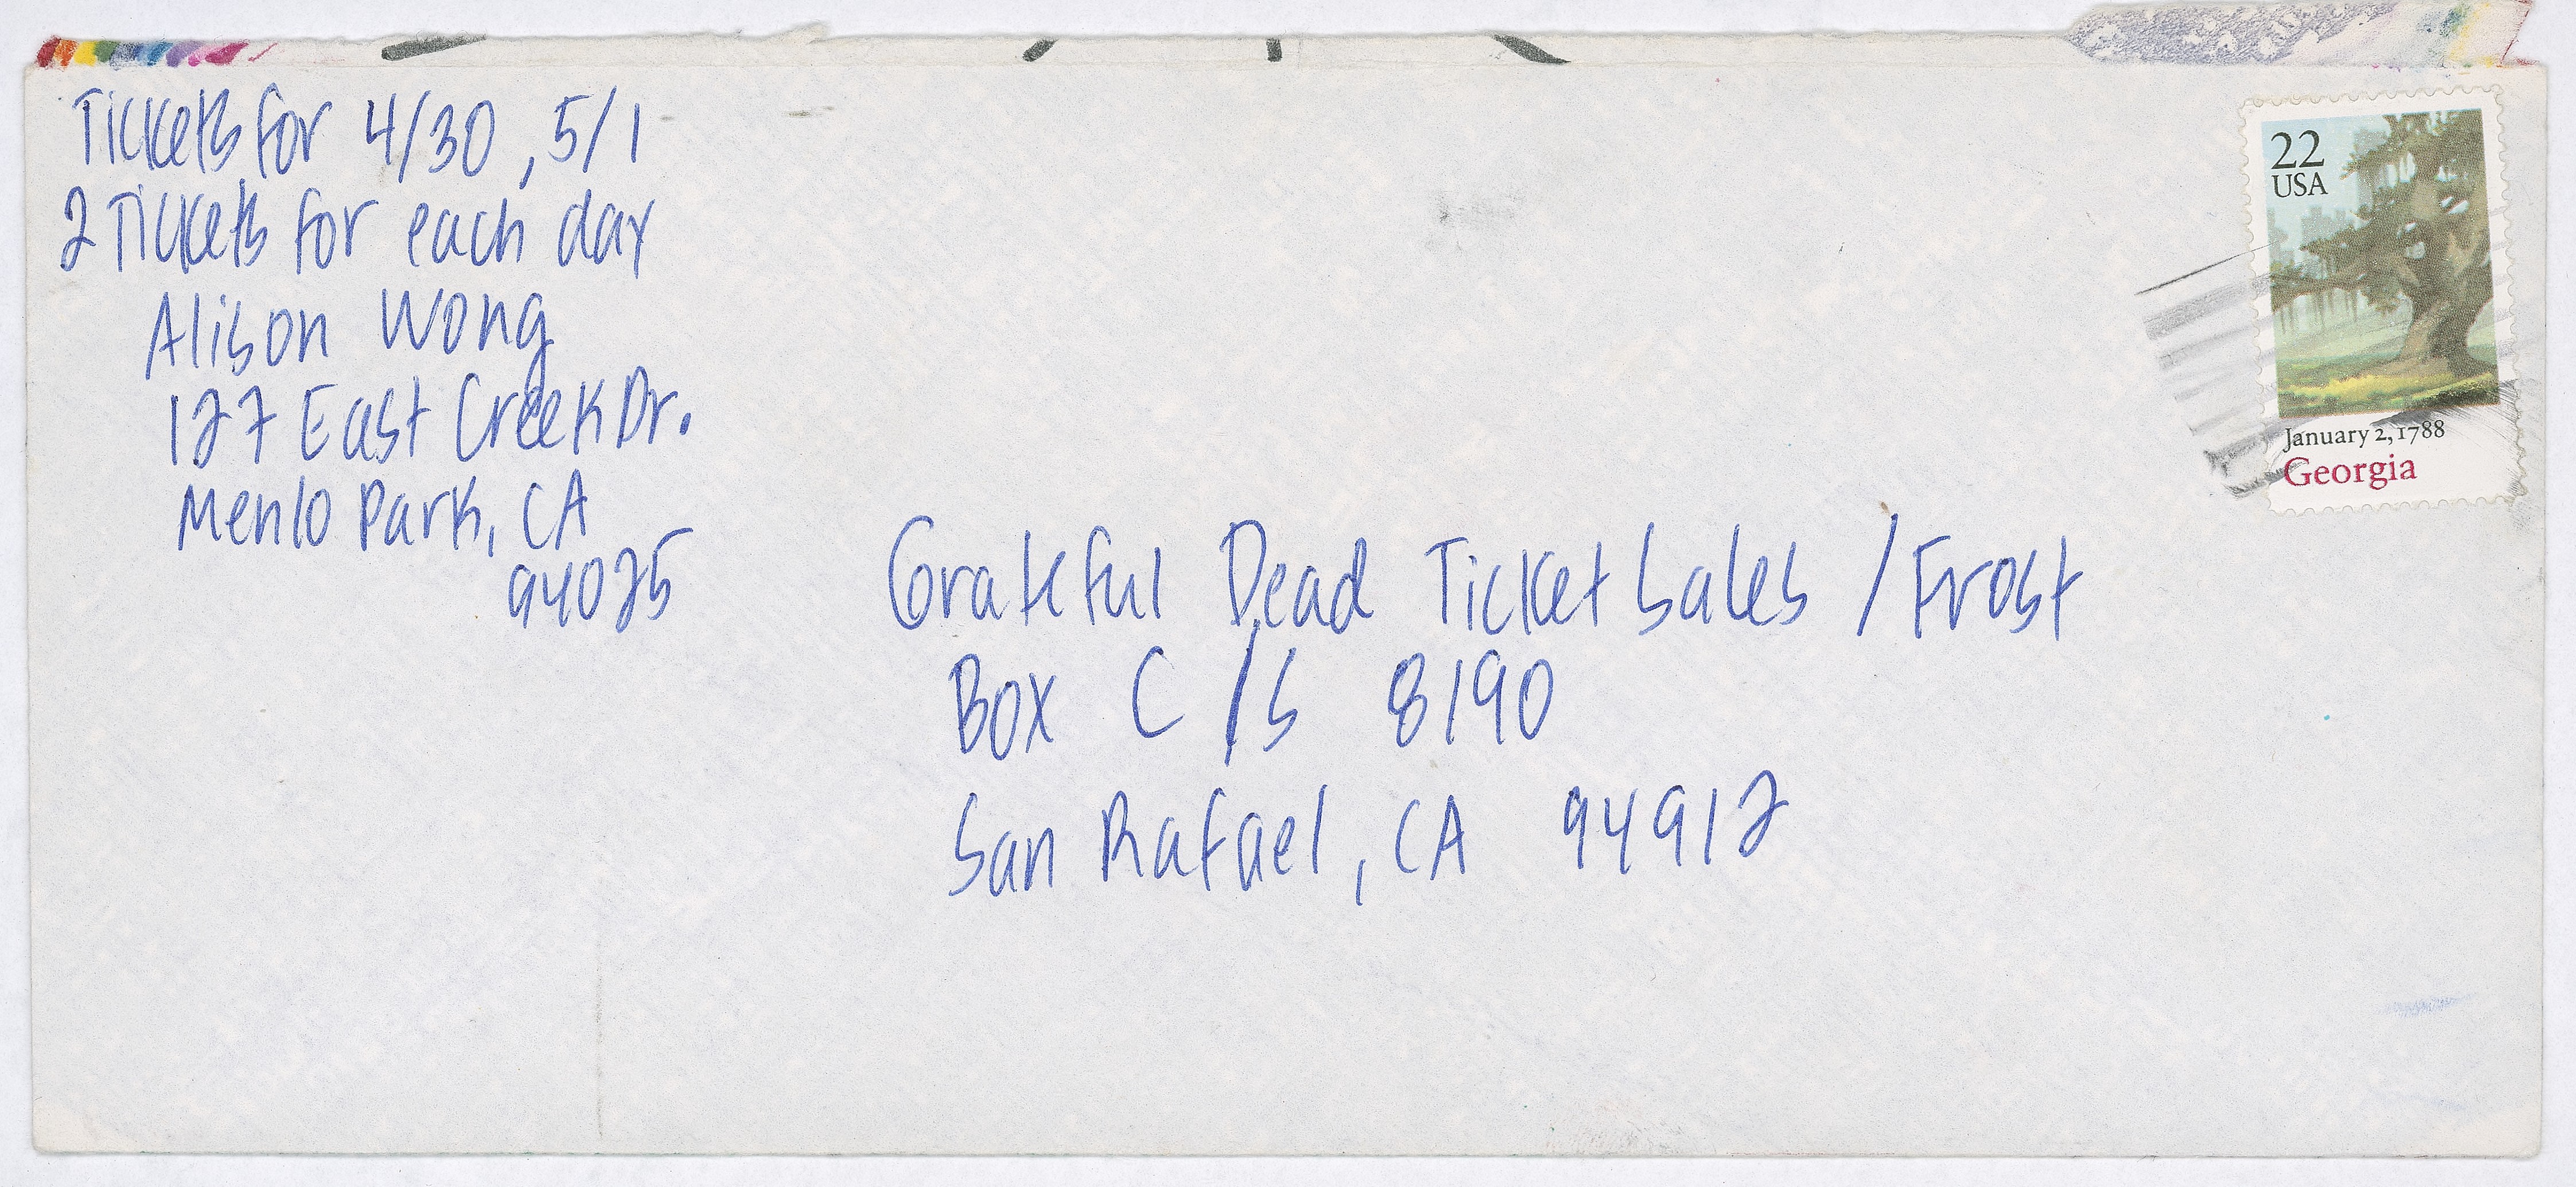 Tickets for 4/30, 5/1
2 Tickets for each day
Alison Wong
127 East Creek Dr.
Menlo Park, CA
94025
22
USA
January 2, 1788
Georgia
Grateful Dead Ticket Sales / Frost
Box C/S 8190
San Rafael, CA 94912